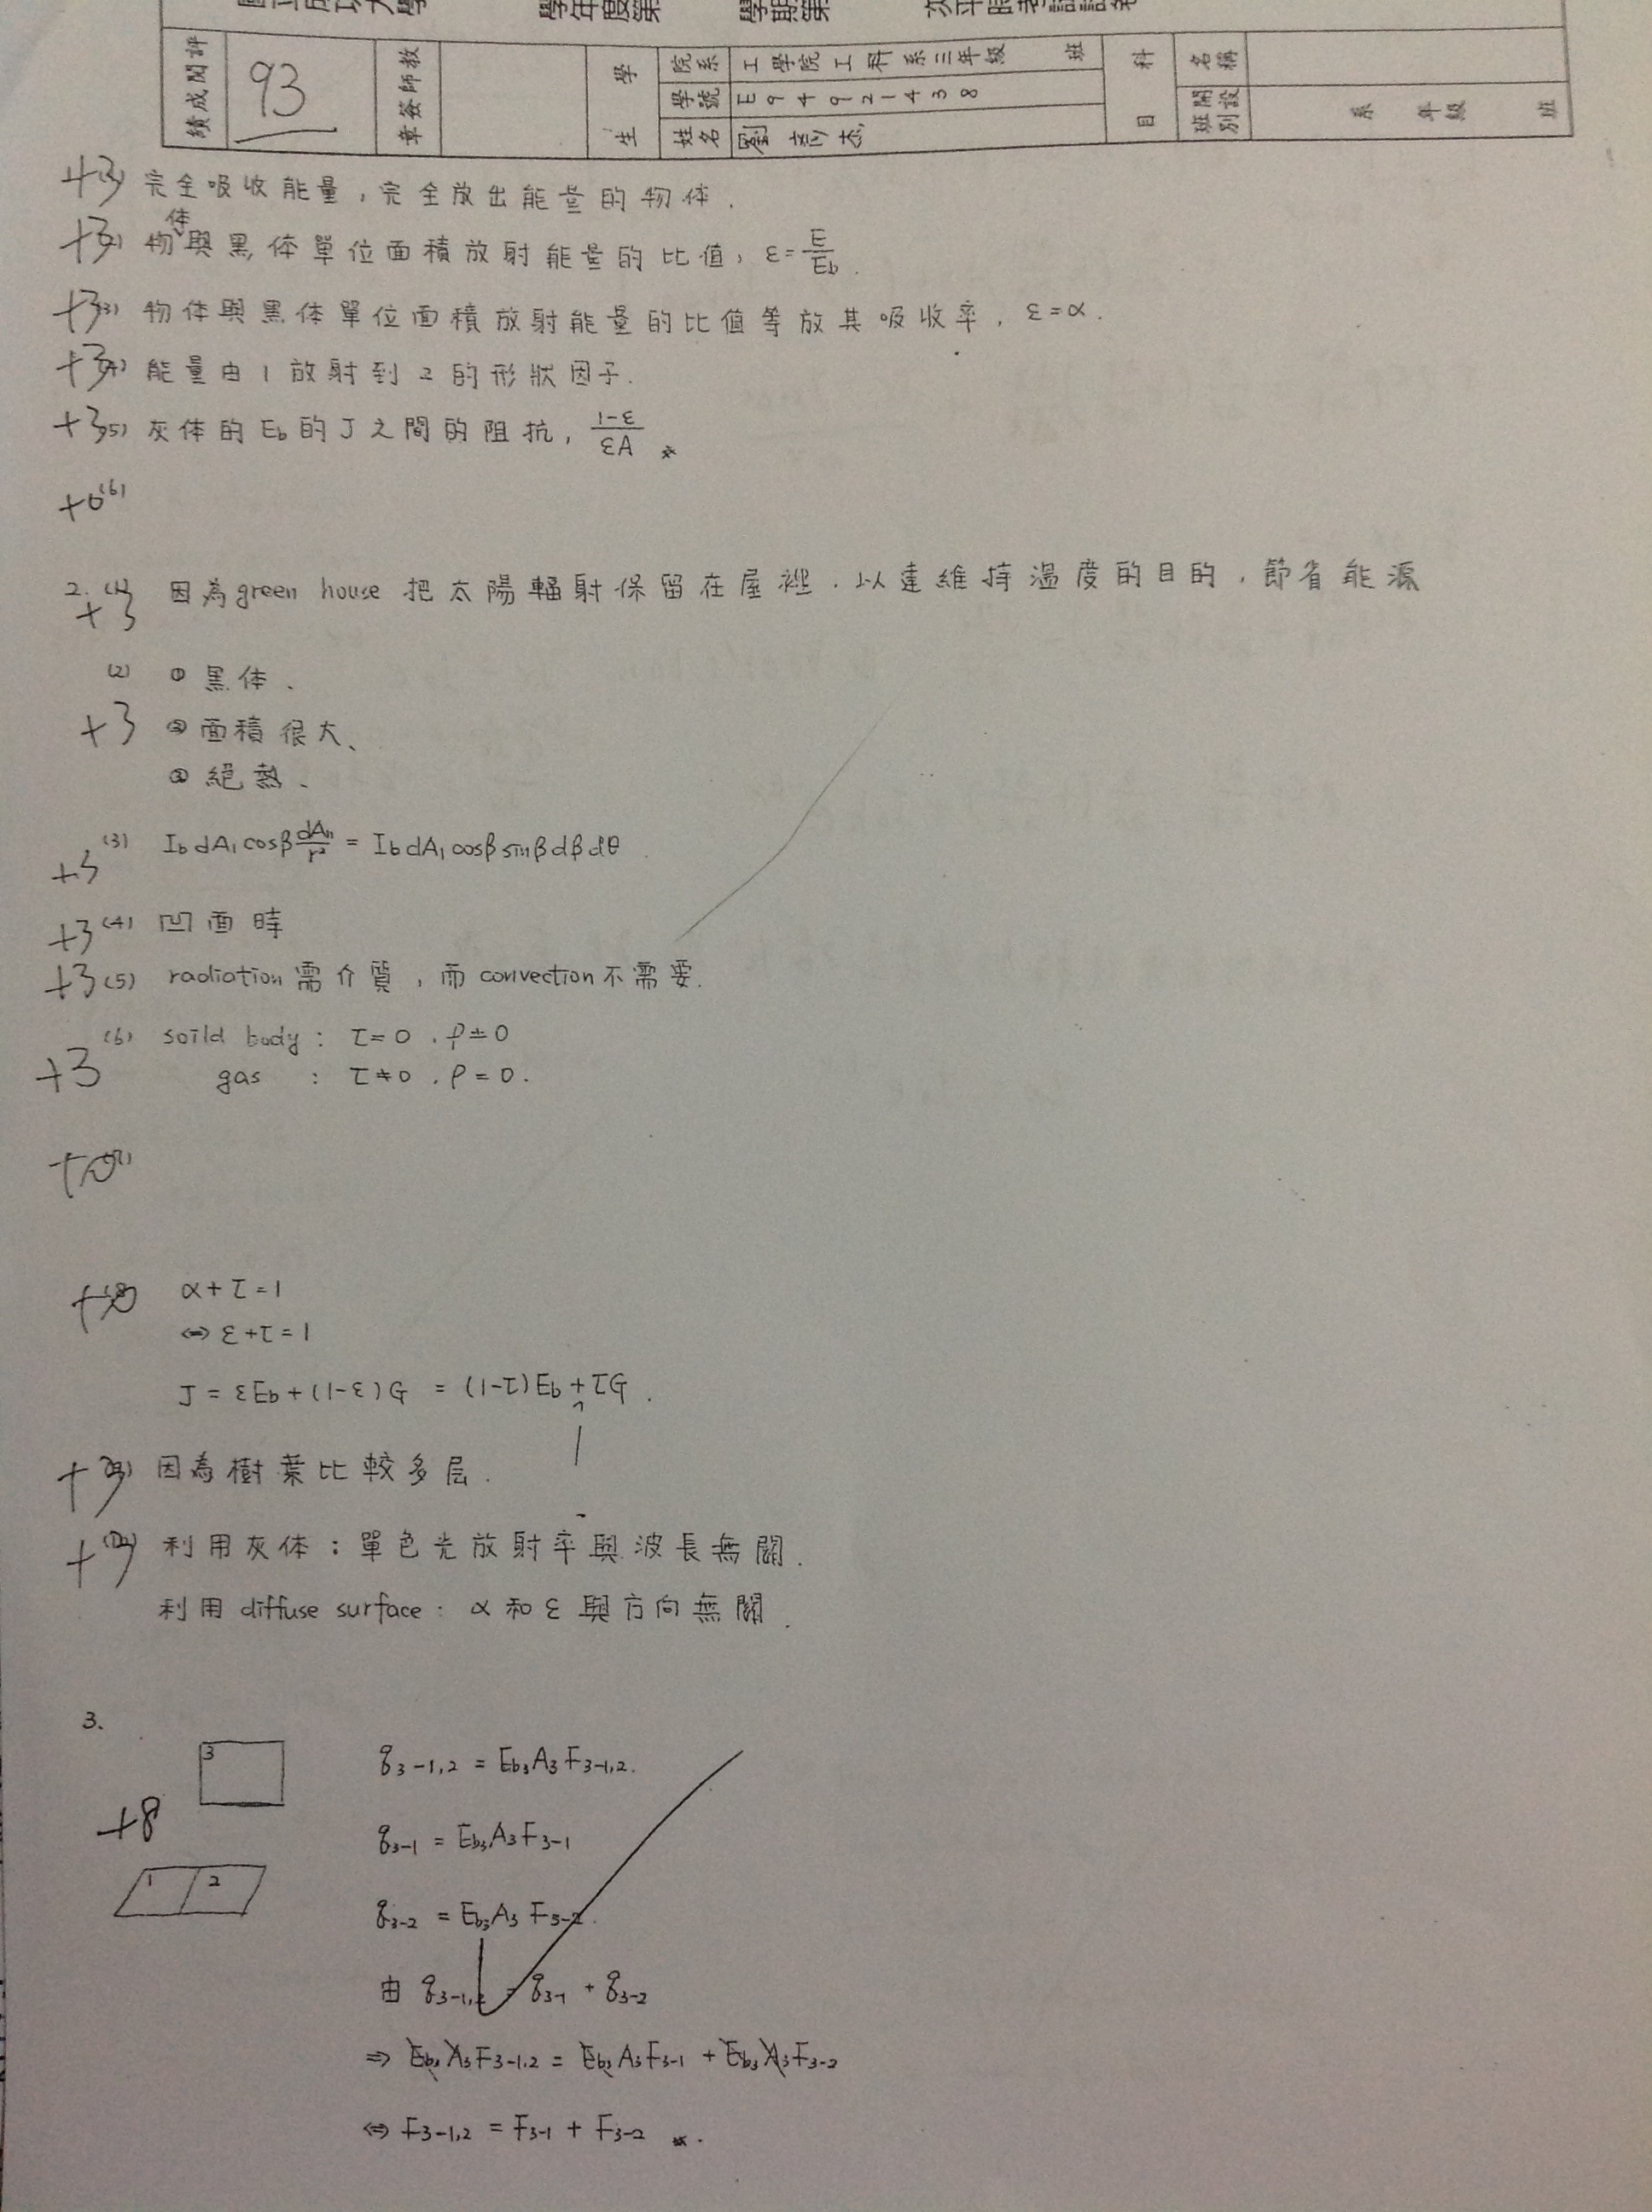 國立成功大學 學年度第 學期第 次平時考試試卷
評閱成績 93 教師簽章 學生 院系 工學院工科系三年級 班 科目 名稱
學號 E94921438 開設班別 系 年級 班
姓名 劉
+3 完全吸收能量,完全放出能量的物体.
+3 物体與黑体單位面積放射能量的比值, ε=E/Eb.
+3 (3) 物体與黑体單位面積放射能量的比值等於其吸收率, ε=α.
+3 能量由1放射到2的形狀因子.
+3 (5) 灰体的Eb的J之間的阻抗, (1-ε)/(εA)
+0 (6)
2. (1) 因為green house把太陽輻射保留在屋裡.以達維持溫度的目的,節省能源
+3
(2) ① 黑体、
+3 ② 面積很大、
③ 絕熱、
+3 (3) Ib dA₁ cosβ dAn/r² = Ib dA₁ cosβ sinβ dβ dθ
+3 (4) 凹面時
+3 (5) radiation需介質,而convection不需要.
(6) soild body : τ=0 . ρ≠0
+3 gas : τ≠0 . ρ=0.
α+τ=1
⇔ ε+τ=1
J = εEb+(1-ε)G = (1-τ)Eb+τG.
因為樹葉比較多层.
利用灰体:單色光放射率與波長無關.
利用diffuse surface: α和ε與方向無關.
3.
3
q3-1,2 = Eb₃A₃F3-1,2.
+8
q3-1 = Eb₃A₃F3-1
1 2
q3-2 = Eb₃A₃F3-2.
由 q3-1,2 = q3-1 + q3-2
⇒ Eb₃A₃F3-1,2 = Eb₃A₃F3-1 + Eb₃A₃F3-2
⇔ F3-1,2 = F3-1 + F3-2